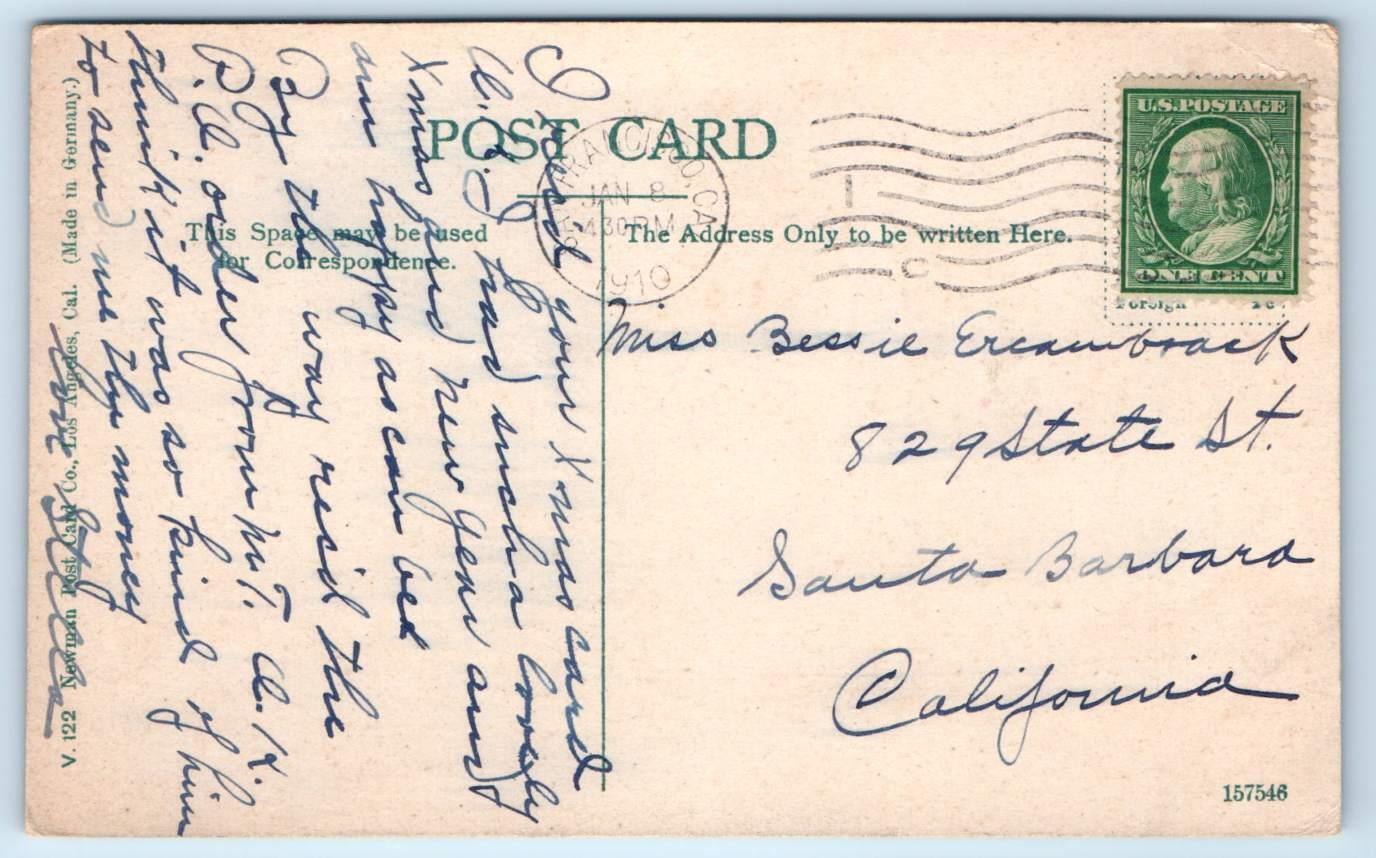 POST CARD
This Space may be used
for Correspondence.
The Address Only to be written Here.
SAN FRANCISCO, CA
JAN 8
430 PM
1910
U.S. POSTAGE
ONE CENT
Foreign 2c
Miss Bessie
829 State St.
Santa Barbara
California
157546
V. 122 Newman Post Card Co., Los Angeles, Cal. (Made in Germany.)
I rec'd your Xmas card
had such a lovely
Xmas and New Year and
am happy as can be
By the way rec'd the
P.O. order from
think it was so kind of him
to send me the money